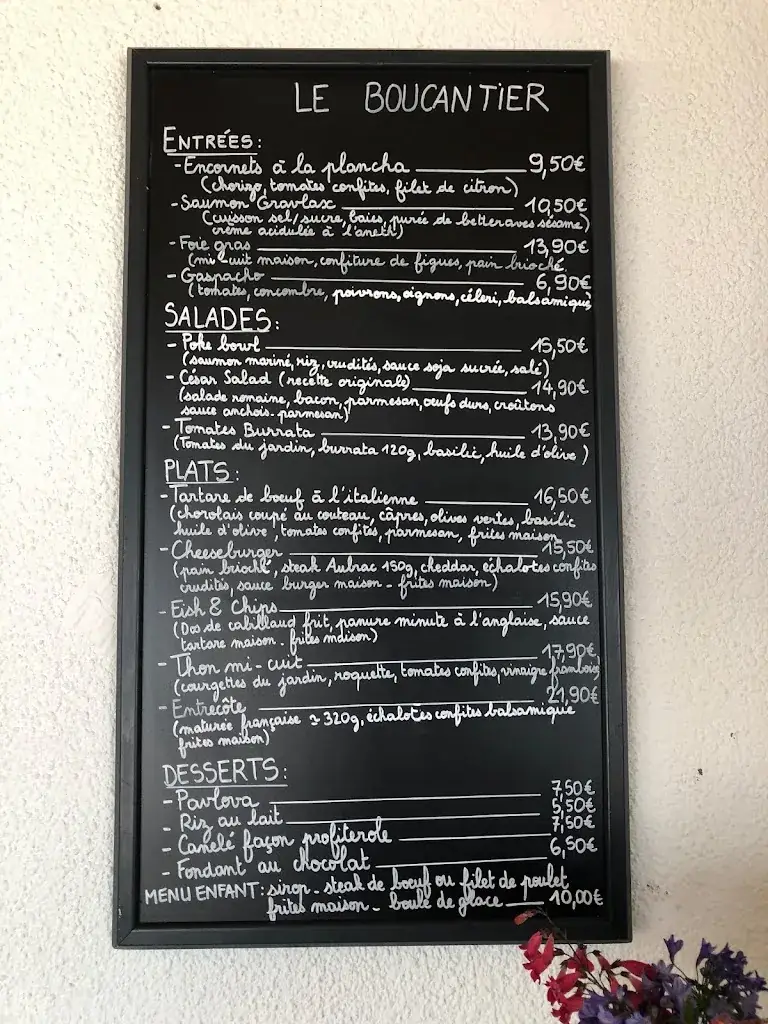 LE BOUCANTIER
ENTRÉES:
- Encornets à la plancha 9,50€
(chorizo, tomates confites, filet de citron)
- Saumon Gravlax 10,50€
(cuisson sel/sucre, baies, purée de betteraves sésame)
crème acidulée à l'aneth)
- Foie gras 13,90€
(mi-cuit maison, confiture de figues, pain brioché
- Gaspacho 6,90€
(tomates, concombre, poivrons, oignons, céleri, balsamique)
SALADES:
- Poke bowl 15,50€
(saumon mariné, riz, crudités, sauce soja sucrée, salé)
- César Salad (recette originale) 14,90€
(salade romaine, bacon, parmesan, oeufs durs, croûtons
sauce anchois-parmesan)
- Tomates Burrata 13,90€
(Tomates du jardin, burrata 120g, basilic, huile d'olive)
PLATS:
- Tartare de boeuf à l'italienne 16,50€
(charolais coupé au couteau, câpres, olives vertes, basilic
huile d'olive, tomates confites, parmesan, frites maison
- Cheeseburger 15,50€
(pain brioché, steak Aubrac 150g, cheddar, échalotes confites
crudités, sauce burger maison - frites maison)
- Fish & Chips 15,90€
(Dos de cabillaud frit, panure minute à l'anglaise, sauce
tartare maison - frites maison)
- Thon mi-cuit 17,90€
(courgettes du jardin, roquette, tomates confites, vinaigre framboise
- Entrecôte 21,90€
(maturée française ≃ 320g, échalotes confites balsamique
frites maison)
DESSERTS:
- Pavlova 7,50€
- Riz au lait 5,50€
- Canelé façon profiterole 7,50€
- Fondant au chocolat 6,50€
MENU ENFANT: sirop - steak de boeuf ou filet de poulet
frites maison - boule de glace 10,00€